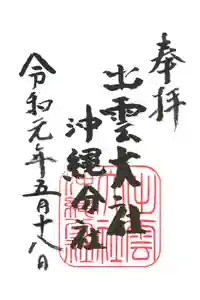 奉拝
出雲大社
沖縄分社
令和元年五月十八日